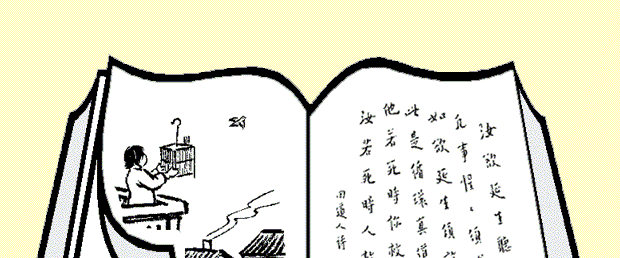 汝欲延生聽
凡事惺、須
如欲延生須
此是循環真道
他若死時你救
汝若死時人救
回道人詩